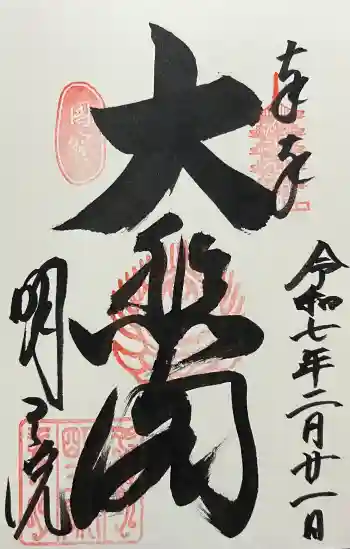 奉拝
令和七年二月廿一日
大悲閣
明王院